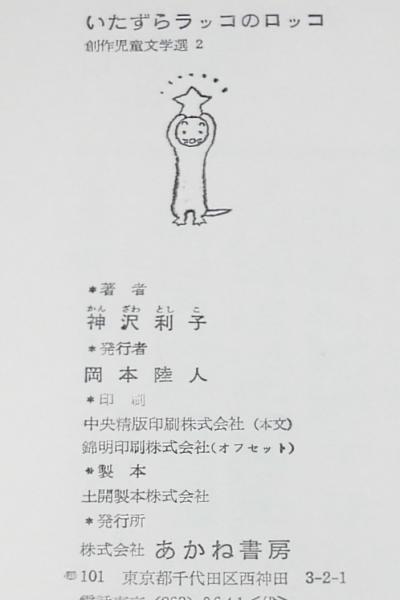 いたずらラッコのロッコ
創作児童文学選 2
*著者
かん ざわ とし こ
神沢利子
*発行者
岡本陸人
*印刷
中央精版印刷株式会社(本文)
錦明印刷株式会社(オフセット)
*製本
土開製本株式会社
*発行所
株式会社 あかね書房
101 東京都千代田区西神田 3-2-1